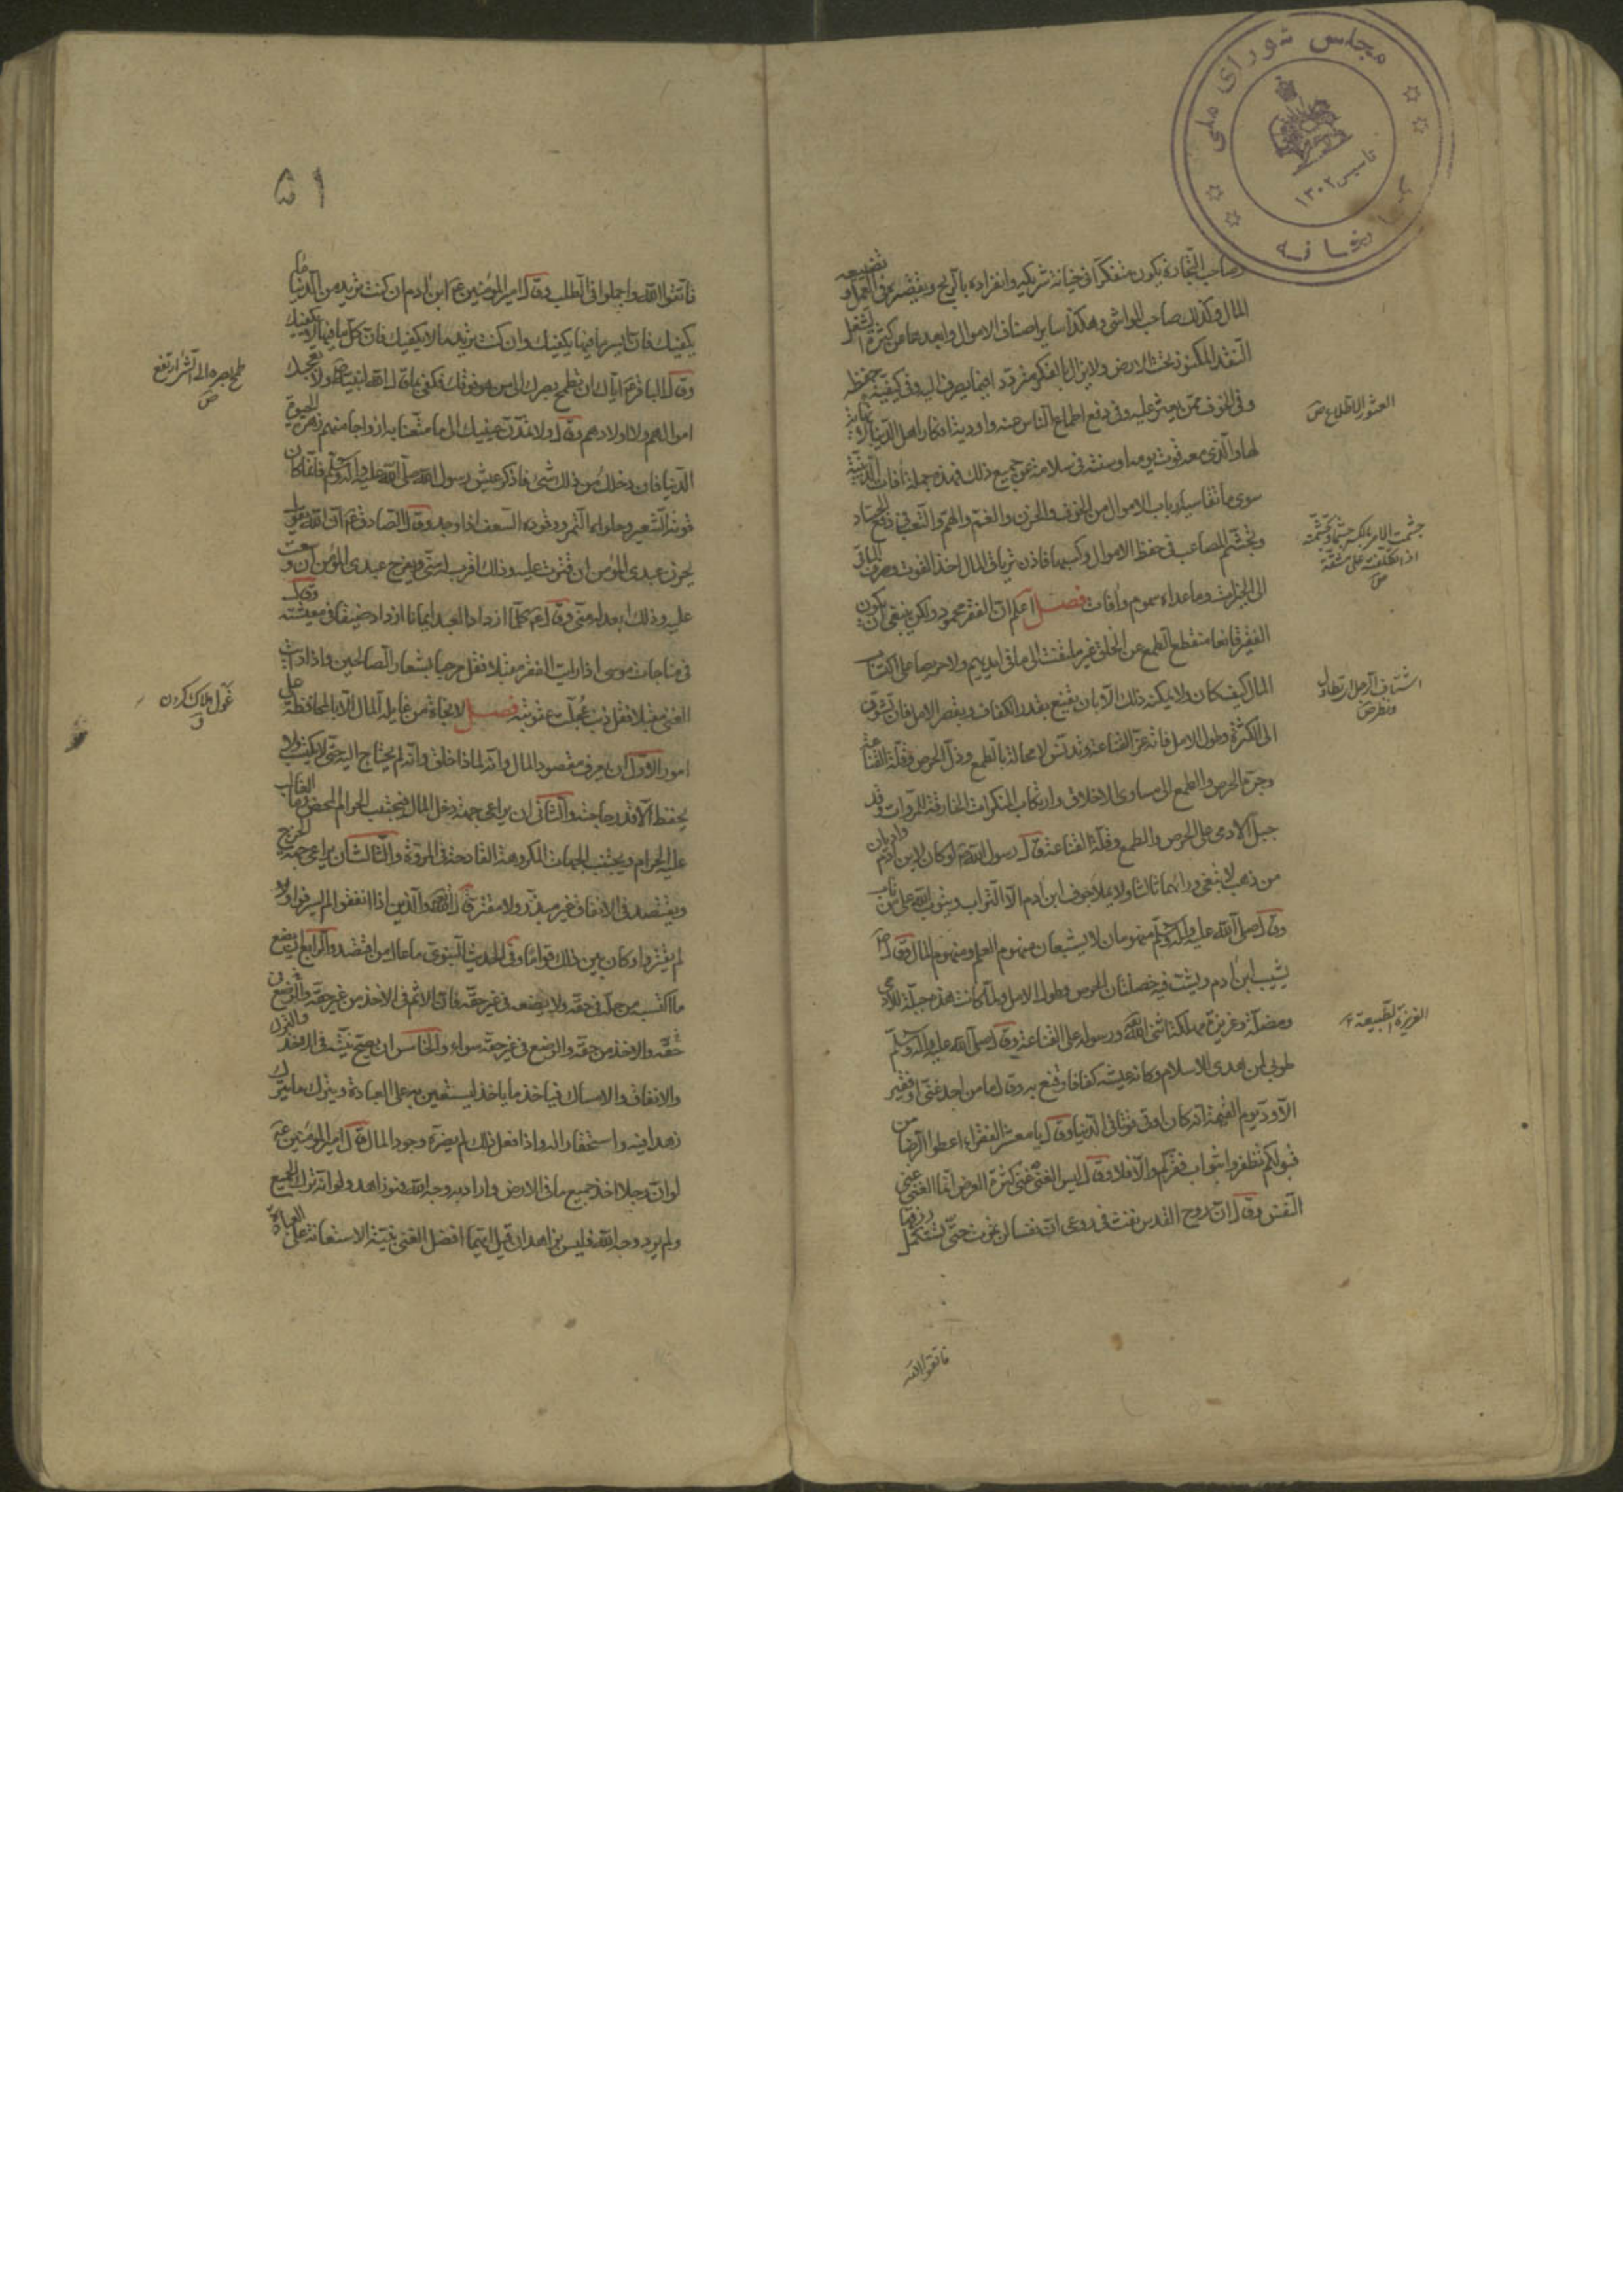 مجلس شورای ملی
تاسیس ۱۳۰۲
صاحب التجارة يكون متفكرا فى خيانة شريكه وانفراده بالربح وتقصيره فى العمل وتضييعه
المال وكذلك صاحب المواشى وهكذا ساير اصناف الاموال وابعدها من كثرة الشغل
النقد المكنوز تحت الارض ولا يزال الفكر مترددا فيما يصرف اليه وفى كيفية حفظه
وفى الخوف ممن يعثر عليه وفى دفع اطماع الناس عنه واودية افكار اهل الدنيا لا نهاية
لها والذى معه قوت يومه او سنته فى سلامة عن جميع ذلك فهذه جملة آفات الدنيوية
سوى ما تقاسيه ارباب الاموال من الخوف والحزن والغم والهم والتعب فى دفع الحساد
وتجشم المصاعب فى حفظ الاموال وكسبها فاذن ترياق المال اخذ القوت وصرف الباقى
الى الخيرات وما عداه سموم وآفات فصل اعلم ان الفقر محمود ولكن ينبغى ان يكون
الفقير قانعا منقطع الطمع عن الخلق غير ملتفت الى ما فى ايديهم ولا حريصا على اكتساب
المال كيف كان ولا يمكنه ذلك الا بان يقنع بقدر الكفاف ويقصر الامل فان تشوق
الى الكثرة وطول الامل فاته عز القناعة وتدنس لا محالة بالطمع وذل الحرص وقلة القناعة
وجره الحرص والطمع الى مساوى الاخلاق وارتكاب المنكرات الخارقة للمروات وقد
جبل الادمى على الحرص والطمع وقلة القناعة قال رسول الله ص لو كان لابن آدم واديان
من ذهب لابتغى ورائهما ثالثا ولا يملا جوف ابن آدم الا التراب ويتوب الله على من تاب
وقال صلى الله عليه وآله وسلم منهومان لا يشبعان منهوم العلم ومنهوم المال وقال ص
يشيب ابن آدم ويشب فيه خصلتان الحرص وطول الامل ولما كانت هذه جبلة للادمى
ومضلة وغريزة مهلكة اثنى الله تعالى ورسوله على القناعة وقال صلى الله عليه وآله وسلم
طوبى لمن هدى الاسلام وكان عيشه كفافا وقنع به وقال ما من احد غنى او فقير
الا ود يوم القيمة انه كان اوتى قوتا فى الدنيا وقال يا معشر الفقراء اعطوا الرضا من
قلوبكم تظفروا بثواب فقركم والا فلا وقال ليس الغنى عن كثرة العرض انما الغنى غنى
النفس وقال ان روح القدس نفث فى روعى ان نفسا لن تموت حتى تستكمل رزقها
فاتقوا الله
العثور الاطلاع ص
جشمت الامر بالكسر جشما وتجشمته
اذا تكلفته على مشقة
ص
اشتاف الرجل اى تطاول
ونظر ص
الغريزة الطبيعة
۵۱
فاتقوا الله واجملوا فى الطلب وقال امير المؤمنين ع ابن آدم ان كنت تريد من الدنيا ما
يكفيك فان ايسر ما فيها يكفيك وان كنت تريد ما لا يكفيك فان كل ما فيها لا يكفيك
وقال الباقر ع اياك ان تطمح بصرك الى من هو فوقك فكفى بما قال الله لنبيه ص ولا تعجبك
اموالهم ولا اولادهم وقال ولا تمدن عينيك الى ما متعنا به ازواجا منهم زهرة الحيوة
الدنيا فان دخلك من ذلك شئ فاذكر عيش رسول الله صلى الله عليه وآله وسلم فانما كان
قوته الشعير وحلواه التمر ووقوده السعف اذا وجد وقال الصادق ع ان الله يقول
يحزن عبدى المؤمن ان قترت عليه وذلك اقرب له منى ويفرح عبدى المؤمن ان وسعت
عليه وذلك ابعد له منى وقال ع كلما ازداد العبد ايمانا ازداد ضيقا فى معيشته وقال
فى مناجات موسى اذا رايت الفقر مقبلا فقل مرحبا بشعار الصالحين واذا رايت
الغنى مقبلا فقل ذنب عجلت عقوبته فصل لا نجاة من غايلة المال الا بالمحافظة على
امور الاول ان يعرف مقصود المال وانه لماذا خلق وانه لم يحتاج اليه حتى لا يكتسب ولا
يحفظ الا قدر حاجته والثانى ان يراعى جهة دخل المال فيجتنب الحرام المحض وما الغالب
عليه الحرام ويجتنب الجهات المكروهة القادحة فى المروة والثالث ان يراعى جهة الخرج
ويقتصد فى الانفاق غير مبذر ولا مقتر قال الله تعالى والذين اذا انفقوا لم يسرفوا ولم
يقتروا وكان بين ذلك قواما وفى الحديث النبوى ما عال من اقتصد والرابع ان يضع
ما اكتسبه من حله فى حقه ولا يضعه فى غير حقه فان الاثم فى الاخذ من غير حقه والوضع فى
حقه والاخذ من حقه والوضع فى غير حقه سواء والخامس ان يصح نيته فى الاخذ والترك
والانفاق والامساك فياخذ ما ياخذ ليستعين به على العبادة ويترك ما يترك
زهدا فيه واستحقارا له واذا فعل ذلك لم يضره وجود المال قال امير المؤمنين ع
لو ان رجلا اخذ جميع ما فى الارض واراد به وجه الله فهو زاهد ولو انه ترك الجميع
ولم يرد وجه الله فليس بزاهد ان قيل ايهما افضل الغنى بنية الاستعانة على العبادة
طمح بصره الى الشئ ارتفع
ص
غول هلاك كردن